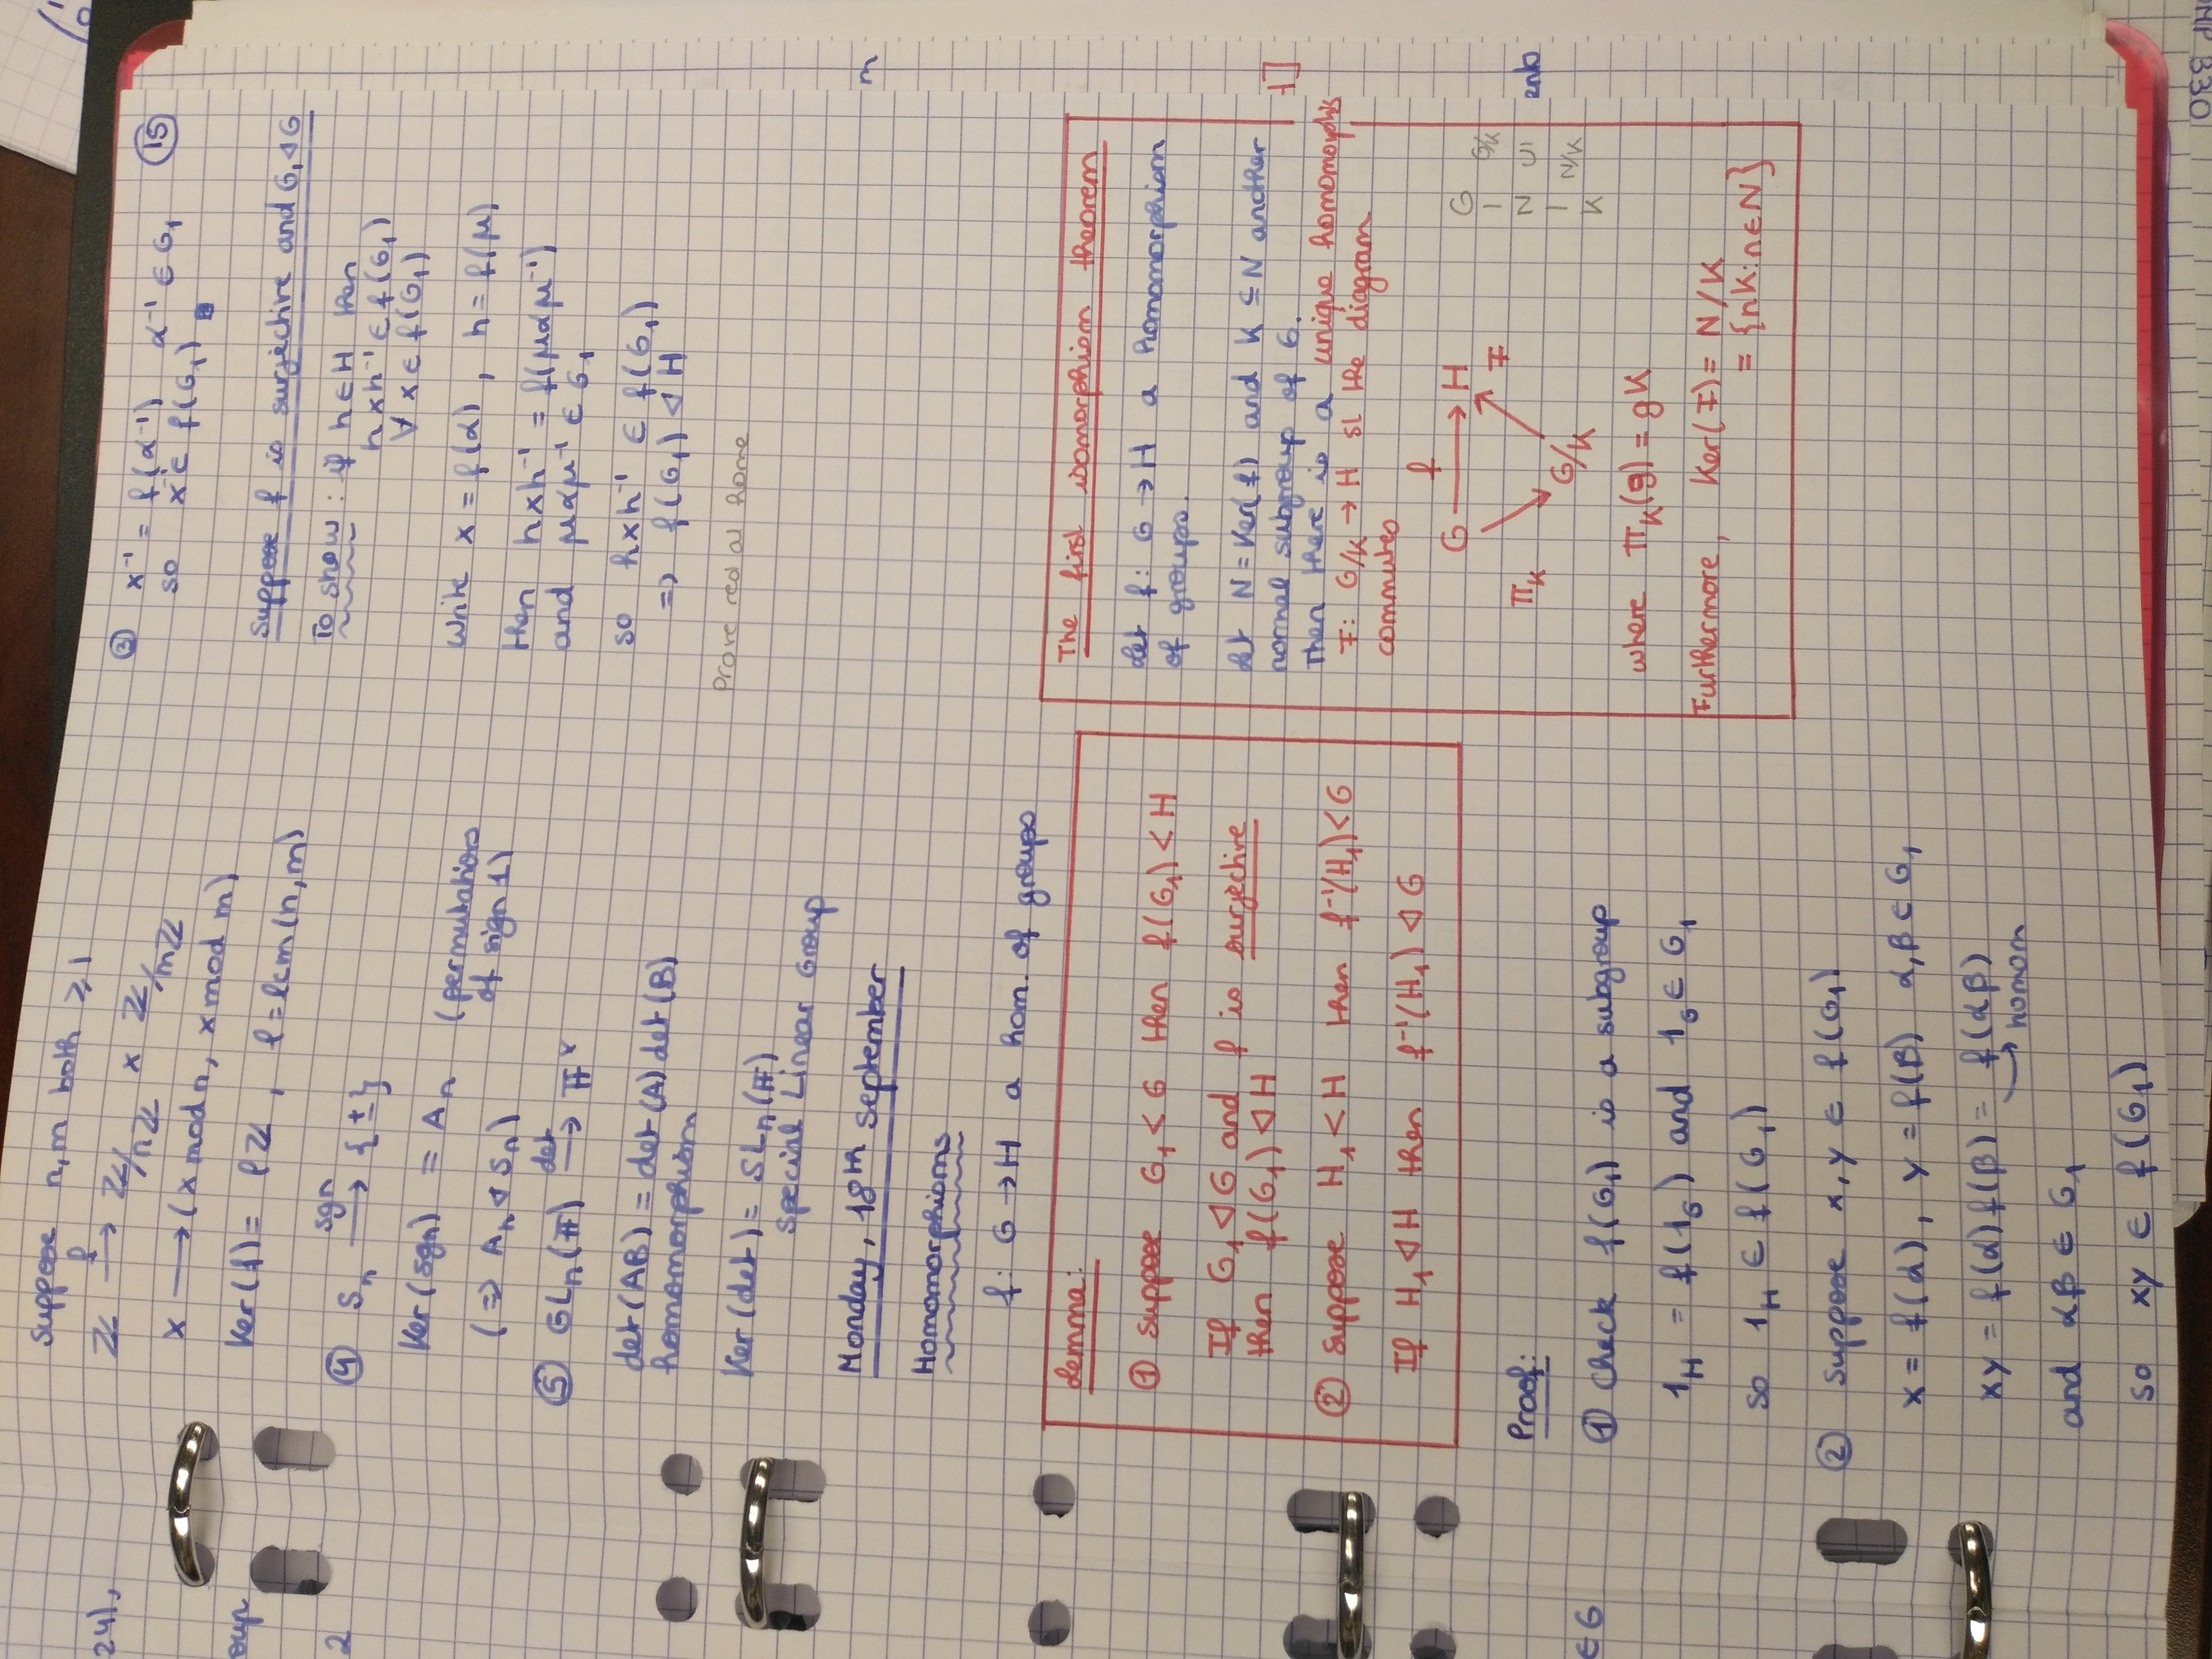 Suppose n,m both ≥1
ℤ —f→ ℤ/nℤ × ℤ/mℤ
x ⟶ (x mod n, x mod m)
Ker(f) = ℓℤ , ℓ = lcm(n,m)
④ Sn —sgn→ {±}
Ker(sgn) = An (permutations
of sign 1)
(⇒ An ◁ Sn)
⑤ GLn(𝔽) —det→ 𝔽ˣ
det(AB) = det(A)det(B)
homomorphism
Ker(det) = SLn(𝔽)
Special Linear Group
Monday, 18th september
Homomorphisms
f: G → H a hom. of groups
Lemma:
① Suppose G₁ < G then f(G₁) < H
If G₁ ◁ G and f is surjective
then f(G₁) ◁ H
② Suppose H₁ < H then f⁻¹(H₁) < G
If H₁ ◁ H then f⁻¹(H₁) ◁ G
Proof:
① Check f(G₁) is a subgroup
1H = f(1G) and 1G ∈ G₁
so 1H ∈ f(G₁)
② Suppose x,y ∈ f(G₁)
x = f(α), y = f(β) α,β ∈ G₁
xy = f(α)f(β) = f(αβ)
→ homom
and αβ ∈ G₁
so xy ∈ f(G₁)
15
③ x⁻¹ = f(α⁻¹) α⁻¹ ∈ G₁
so x⁻¹ ∈ f(G₁)
Suppose f is surjective and G₁ ◁ G
To show: if h ∈ H then
hxh⁻¹ ∈ f(G₁)
∀ x ∈ f(G₁)
Write x = f(α), h = f(μ)
then hxh⁻¹ = f(μαμ⁻¹)
and μαμ⁻¹ ∈ G₁
so hxh⁻¹ ∈ f(G₁)
⇒ f(G₁) ◁ H
Prove rest at home
The first isomorphism theorem
Let f: G → H a homomorphism
of groups.
Let N = Ker(f) and K ⊆ N another
normal subgroup of G.
Then there is a unique homomorphis
F: G/K → H st the diagram
commutes
G —f→ H
πK F
G/K
G G/K
N ∪|
N/K
K
where πK(g) = gK
Furthermore, Ker(F) = N/K
= {nK: n ∈ N}
24),
oup
2
∈G
m
H]
COMP B30